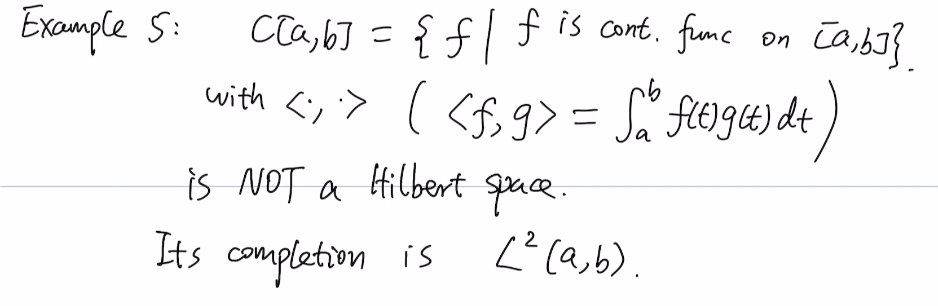 Example 5: C[a,b] = { f | f is cont. func on [a,b]}.
with <·, ·> ( <f, g> = ∫_a^b f(t)g(t) dt )
is NOT a Hilbert space.
Its completion is L²(a,b).